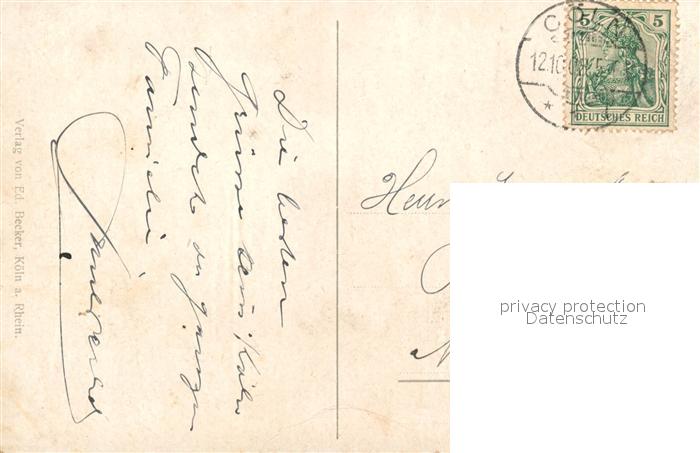 Die besten
Grüsse aus Köln
sendet der ganzen
Familie
Verlag von Ed. Becker, Köln a. Rhein.
CÖLN
12.10.
5 5
DEUTSCHES REICH
Herrn
privacy protection
Datenschutz